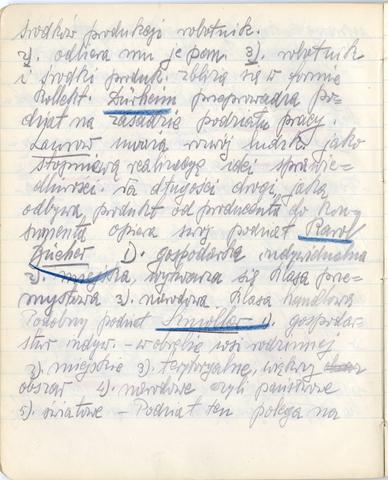 środków produkcji robotnik.
2). odbiera mu je pan. 3). robotnik
i środki produk. zbliżą się w formie
kollekt. Dürkeim przeprowadza po-
dział na zasadzie podziału pracy.
Ławrow uważa rozwój ludzk. jako
stopniową realizację idei sprawie-
dliwości. Na długości drogi, jaką
odbywa produkt od producenta do kon-
sumenta opiera swój podział Karol
Bücher 1). gospodarka indywidualna
2). miejska, wytwarza się klasa prze-
mysłowa 3). narodowa klasa handlowa
Podobny podział Szmoller 1). gospodar-
stw indyw. – w obrębie wsi rodzinnej
2). miejskie 3). terytoryalne, większy
obszar 4). narodowe czyli państwowe
5). światowe – Podział ten polega na